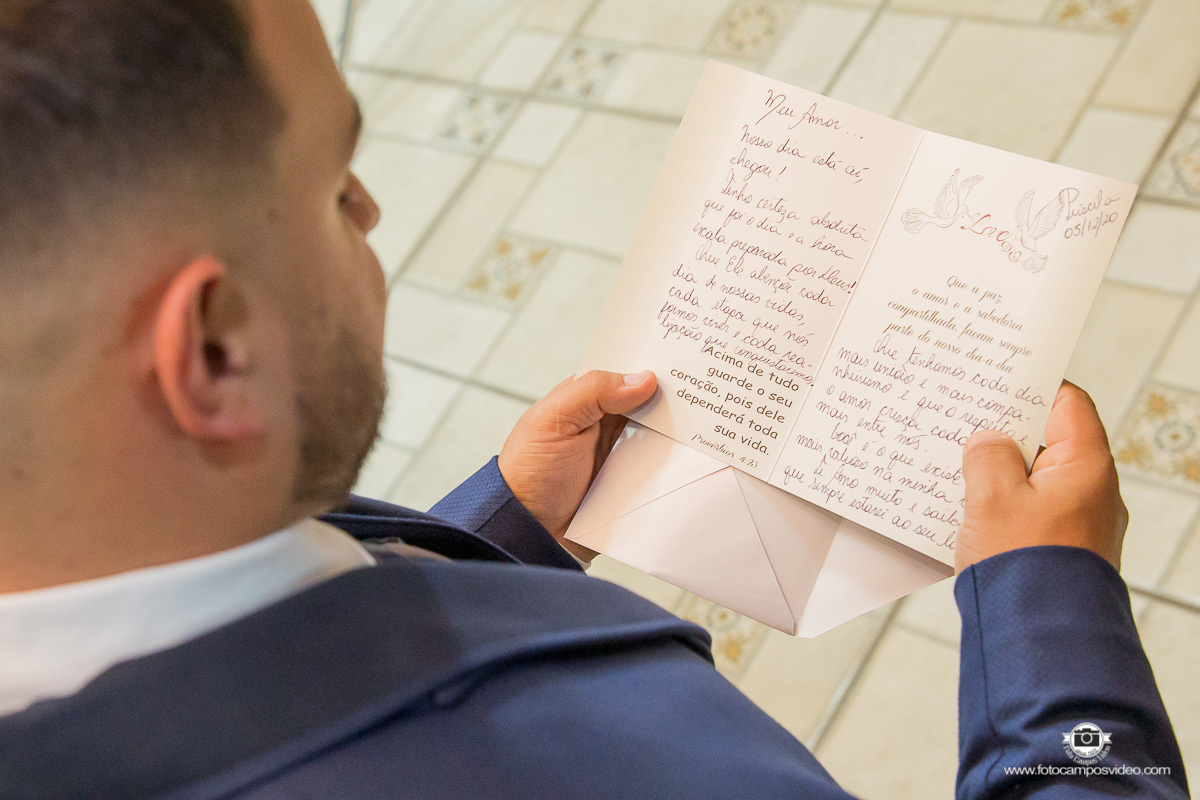 Meu Amor...
Nosso dia está aí,
chegou!
Tenho certeza absoluta
que foi o dia e a hora
exata preparada por Deus!
Que Ele abençoe cada
dia de nossas vidas,
cada etapa que nós
formos viver e cada rea-
lização que conquistarmos.
Acima de tudo
guarde o seu
coração, pois dele
dependerá toda
sua vida.
Provérbios 4:23
Priscila
05/12/20
Love
Que a paz,
o amor e a sabedoria
compartilhada, façam sempre
parte do nosso dia-a-dia.
Que tenhamos cada dia
mais união e mais compa-
nheirismo e que o respeito e
o amor cresça cada
mais entre nós.
Você é o que existe
mais valioso na minha
te Amo muito e saiba
que sempre estarei ao seu
Foto Campos Vídeo
www.fotocamposvideo.com